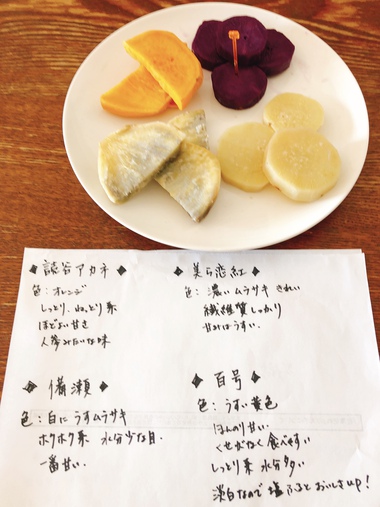 ◆ 読谷アカネ ◆
色:オレンジ
しっとり、ねっとり系
ほどよい甘さ
人参みたいな味
◆ 美ら恋紅 ◆
色:濃いムラサキ きれい
繊維質しっかり
甘みはうすい.
◆ 備瀬 ◆
色:白にうすムラサキ
ホクホク系 水分少な目.
一番甘い.
◆ 百号 ◆
色:うすい黄色
ほんのり甘い.
くせがなく食べやすい
しっとり系 水分多い
淡白なので 塩ふるとおいしさup!